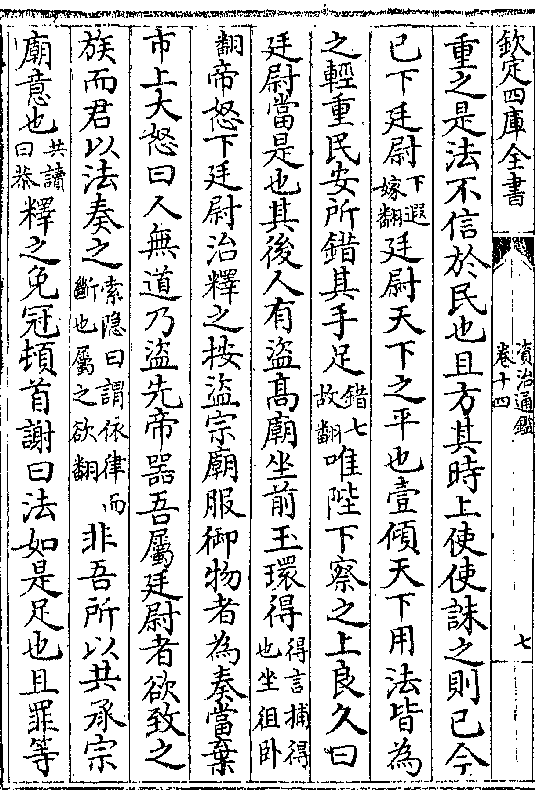 欽定四庫全書
資治通鑑
卷十四
七
重之是法不信於民也且方其時上使使誅之則已今
已下廷尉下遐嫁翻廷尉天下之平也壹傾天下用法皆為
之輕重民安所錯其手足錯七故翻唯陛下察之上良久曰
廷尉當是也其後人有盜高廟坐前玉環得得言捕得也坐徂卧
翻帝怒下廷尉治釋之按盜宗廟服御物者為奏當棄
市上大怒曰人無道乃盜先帝器吾屬廷尉者欲致之
族而君以法奏之索隐曰謂依律而斷也屬之欲翻非吾所以共承宗
廟意也共讀曰恭釋之免冠頓首謝曰法如是足也且罪等